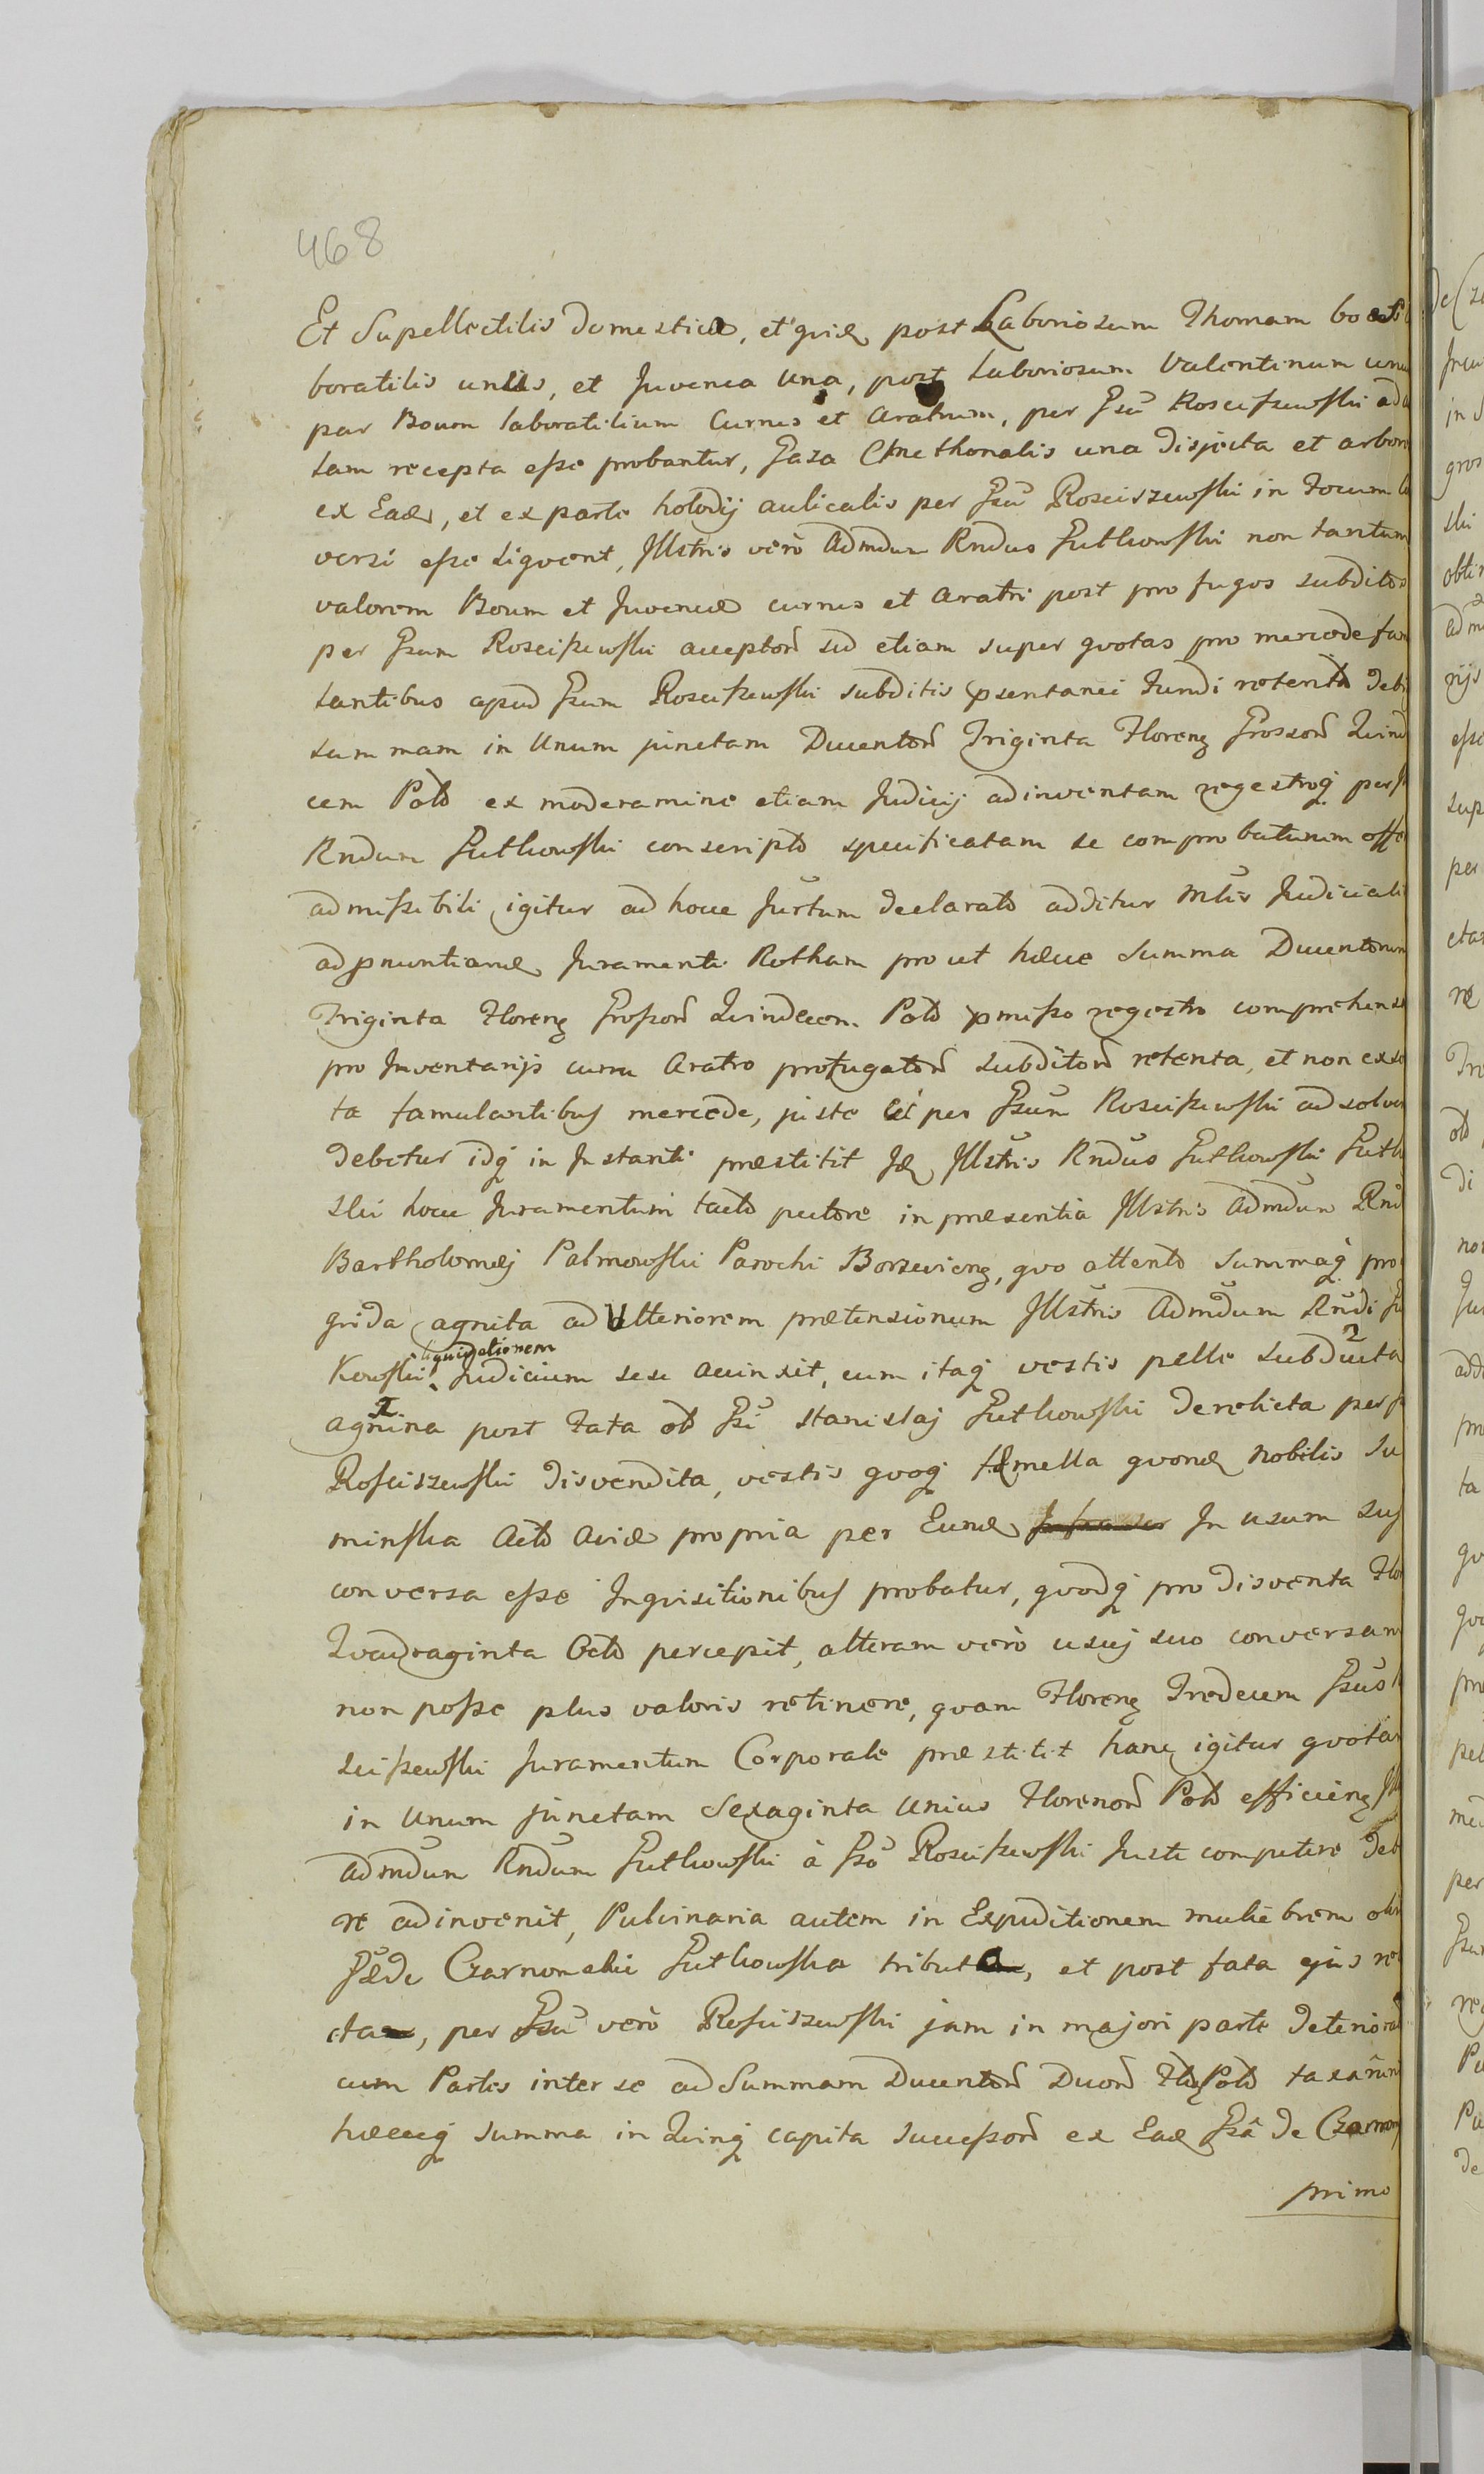 468
Et Supellectilis domesticæ, et quidē post Laboriosum Thomam bo
boratilis unus, et Juvenca una, post Laboriosum Valentinum unu
par Boum laboratilium Currus et Aratrum, per Gsū Kosciszewski ad
tam recepta esse probantur, Gaza Cmethonalis una disjecta et arbor
ex Eadē, et ex parte holodij aulicalis per Gsū Rosciszewski in focum
versi esse liqvent, Jllstris verò Admdum Rndus Gutkowski non tantum
valorem Boum et Juvencæ currus et Aratri post profugos subditos
per Gsum Rosciszewski acceptorū sed etiam super qvotas pro mercede fam
lantibus apud Gsum Rosciszewski subditis pæsentanei fundi retenta deb
summam in Unum junctam Ducentorū Triginta Florenꝫ Grossorū Qvind
cem Pold ex moderamine etiam Judicij adinventam regestroqꝫ per
Rndum Gutkowski conscripto specificatam se comprobaturum offe
admissibili igitur ad hocce Jurtum declarato additur Mltis Judiciali
ad pnuntiandē Juramenti Rotham prout hæcce Summa Ducentorum
Triginta Florenꝫ Grossorū Qvindecem Pold pmisso regestro comprehensa
pro Jnventarijs curru Aratro profugatorū subditorū retenta, et non exso
ta famulantibus mercede, juste ei per Gsum Rosciszewski adsolvi
debetur idqꝫ in Jnstanti præstitit Jdē Jllstris Rndus Gutkowski Gutk
ski hocce Juramentum tacto pectore in præsentia Jllstris Admdum Rnd
Bartholomæj Palmowski Parochi Borzevienꝫ, qvo attento Summaqꝫ pro
qvida agnita ad Ulteriorem prætensionum Jllstris Admdum Rndi Gu
kowski liquidationem Judicium sese accinxit, cum itaqꝫ vestis pelle subducta
agnina post fata od Gsi Stanislaj Gutkowski derelicta per
Rosciszewski disvendita, vestis qvoqꝫ fæmella qvondē Nobilis Su
minska Acto Aviæ propria per Eundē In usum suj
conversa esse Jnqvisitionibus probatur, qvodqꝫ pro disventa Flor
Qvadraginta Octo percepit, alteram verò usuj suo conversam
non posse plus valoris retinere, qvam Florenꝫ Tredecem Gsus
sciszewski Juramentum Corporale præstitit hanc igitur qvotam
in Unum junctam Sexaginta Unius Florenorū Pold efficienꝫ Jll
Admdum Rndum Gutkowski à Gso Rosciszewski Juste competere deb
re adinvenit, Pulvinaria autem in Expeditionem muliebrem olim
Gsæ de Czarnomskie Gutkowska tributa, et post fata ejus re
cta, per Gsū verò Rosciszewski jam in majori parte deteriora
cum Partes inter se ad Summam Ducentorū Duorū Fld Pold taxarun
hæcceqꝫ summa in Qvinqꝫ capita successorū ex Eadē Gsâ de Czarnom
primo